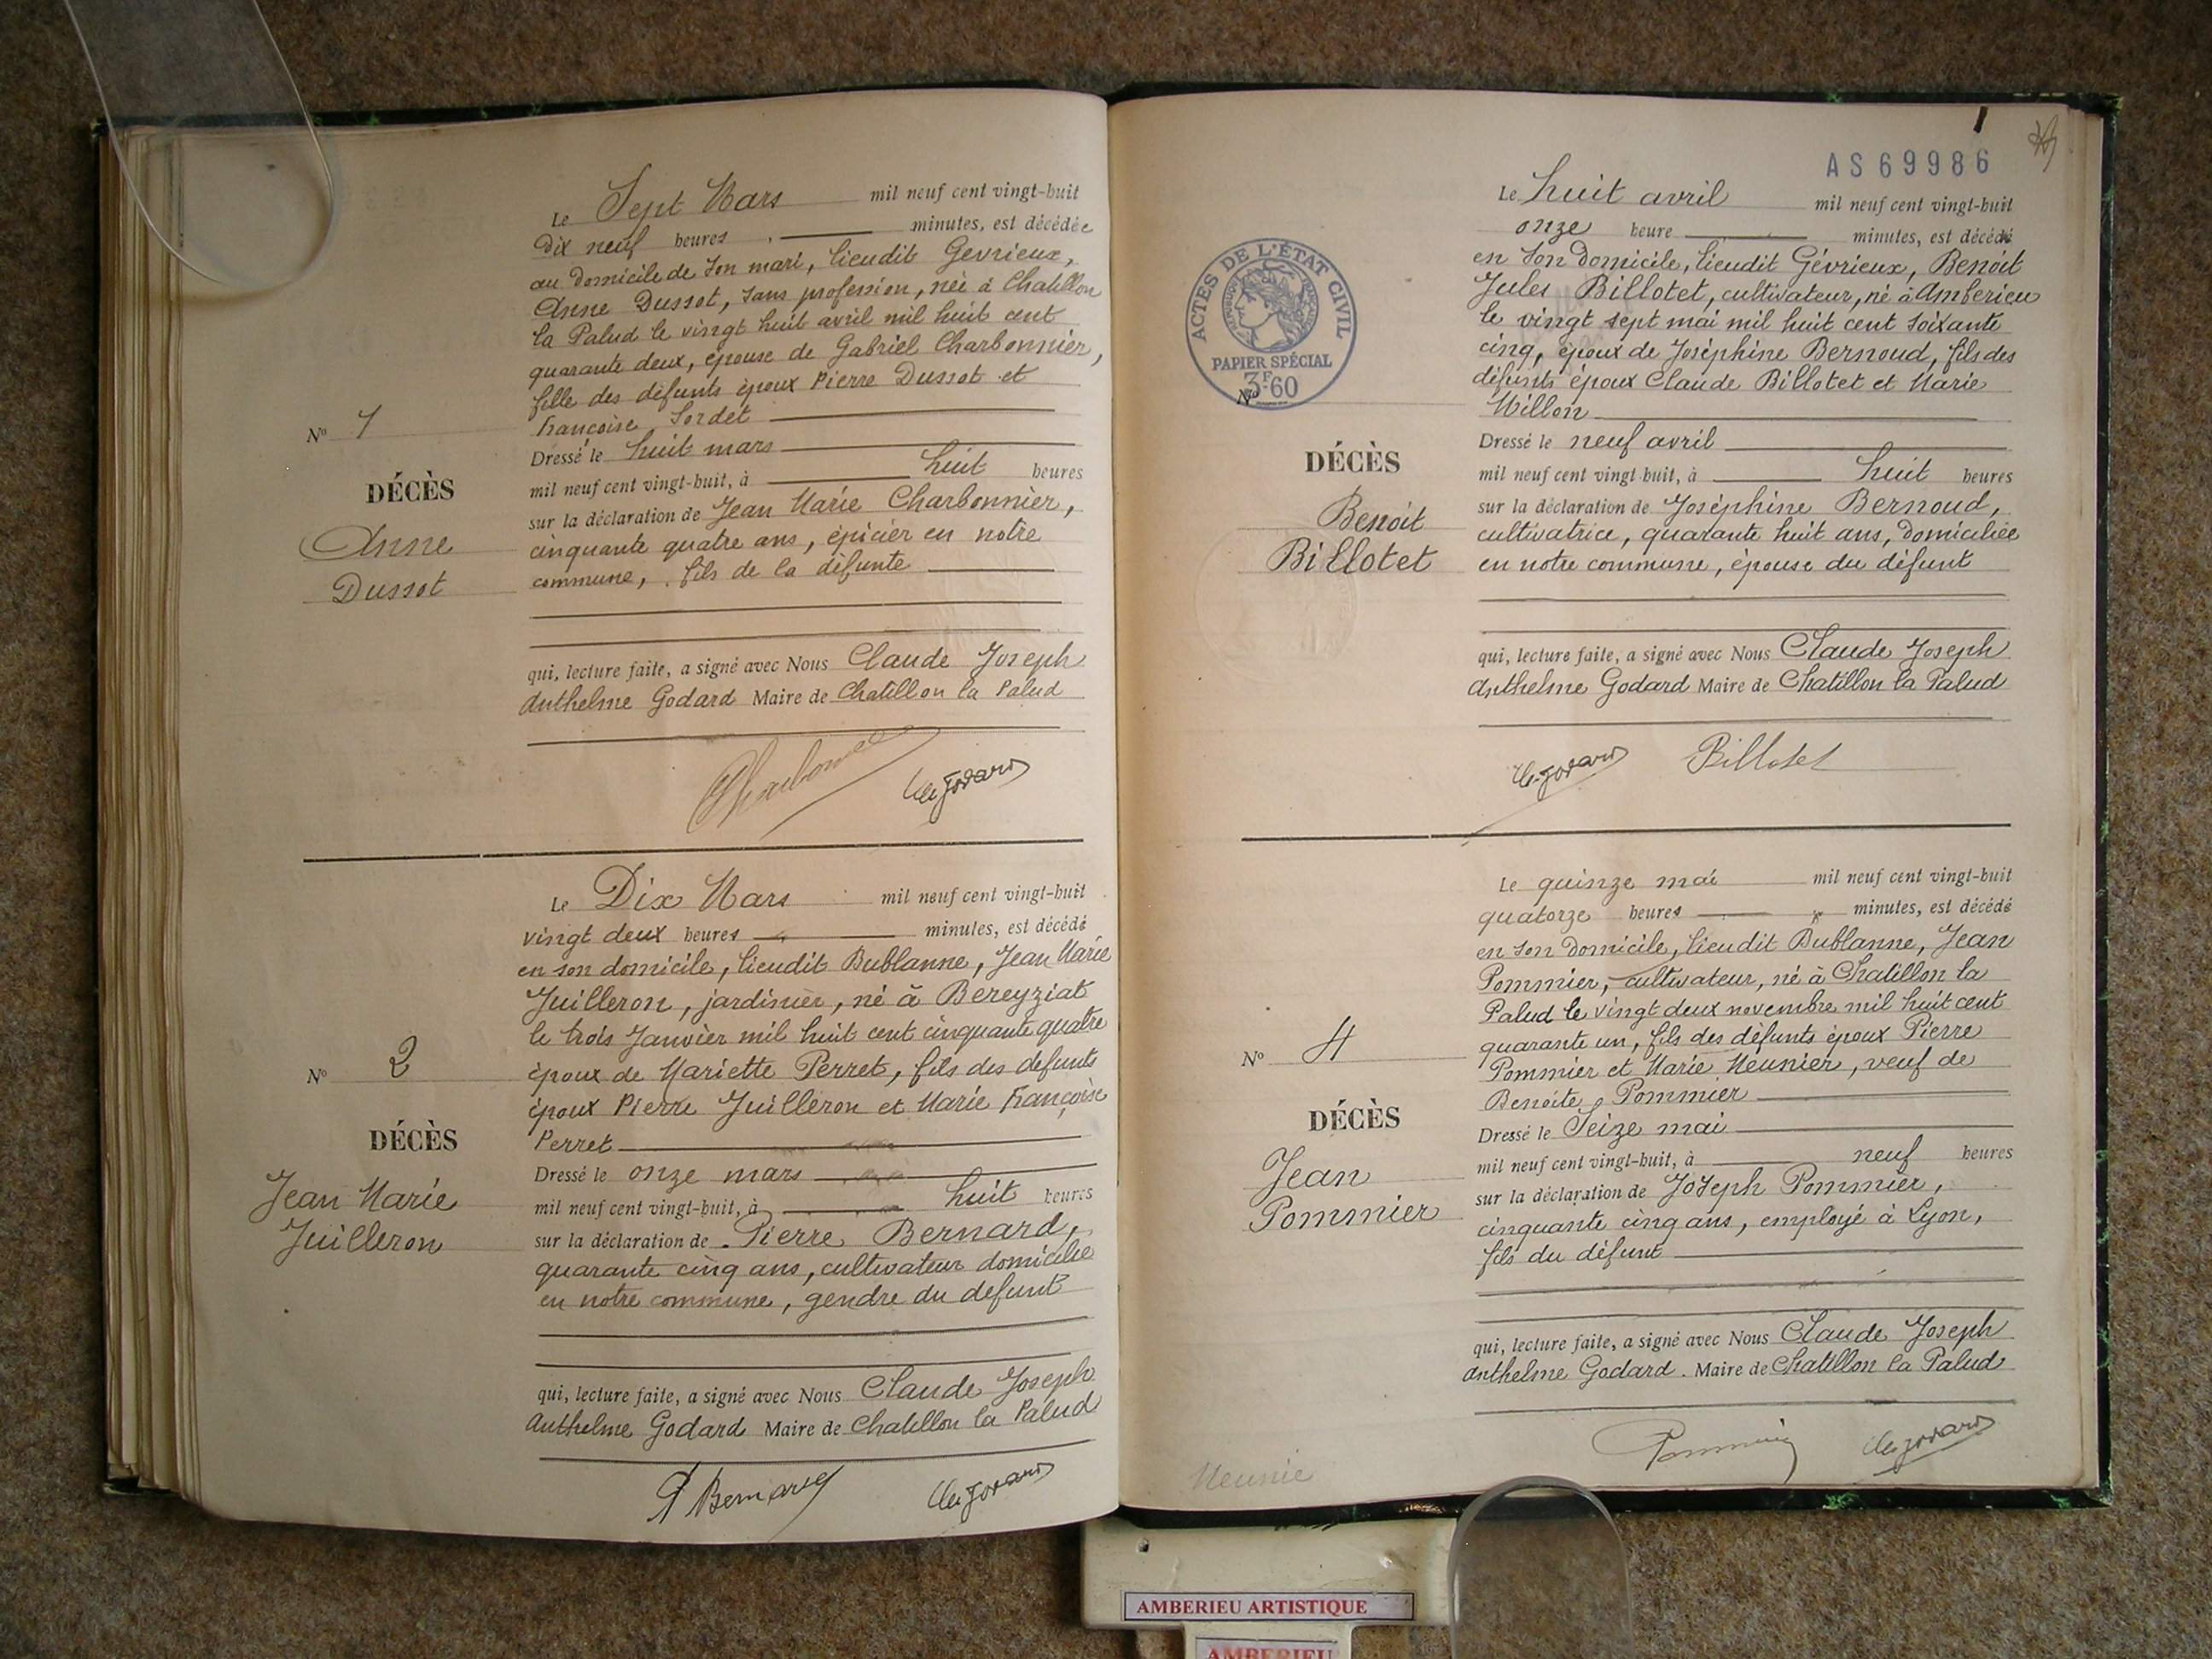 Le Sept Mars mil neuf cent vingt-huit
dix neuf heures minutes, est décédée
au domicile de son mari, lieudit Gevrieux,
Anne Dussot, sans profession, née à Chatillon
la Palud le vingt huit avril mil huit cent
quarante deux, épouse de Gabriel Charbonnier,
fille des défunts époux Pierre Dussot et
Françoise Sordet
Dressé le huit mars
mil neuf cent vingt-huit, à huit heures
sur la déclaration de Jean Marie Charbonnier,
cinquante quatre ans, épicier en notre
commune, fils de la défunte
qui, lecture faite, a signé avec Nous Claude Joseph
Anthelme Godard Maire de Chatillon la Palud
Nº 1
DÉCÈS
Anne
Dussot
Le Dix Mars mil neuf cent vingt-huit
vingt deux heures minutes, est décédé
en son domicile, lieudit Bublanne, Jean Marie
Juilleron, jardinier, né à Bereyziat
le trois Janvier mil huit cent cinquante quatre
époux de Mariette Perret, fils des defunts
époux Pierre Juilleron et Marie Françoise
Perret
Dressé le onze mars
mil neuf cent vingt-huit, à huit heures
sur la déclaration de Pierre Bernard,
quarante cinq ans, cultivateur domicilié
en notre commune, gendre du defunt
qui, lecture faite, a signé avec Nous Claude Joseph
Anthelme Godard Maire de Chatillon la Palud
P Bernard
Nº 2
DÉCÈS
Jean Marie
Juilleron
AS69986
ACTES DE L'ÉTAT CIVIL
PAPIER SPÉCIAL
3F60
Le huit avril mil neuf cent vingt-huit
onze heure minutes, est décédé
en son domicile, lieudit Gévrieux, Benoit
Jules Billotet, cultivateur, né à Amberieu
le vingt sept mai mil huit cent soixante
cinq, époux de Joséphine Bernoud, fils des
défunts époux Claude Billotet et Marie
Millon
Dressé le neuf avril
mil neuf cent vingt-huit, à huit heures
sur la déclaration de Joséphine Bernoud,
cultivatrice, quarante huit ans, domiciliée
en notre commune, épouse du défunt
qui, lecture faite, a signé avec Nous Claude Joseph
Anthelme Godard Maire de Chatillon la Palud
Billotet
Nº
DÉCÈS
Benoit
Billotet
Le quinze mai mil neuf cent vingt-huit
quatorze heures minutes, est décédé
en son domicile, lieudit Bublanne, Jean
Pommier, cultivateur, né à Chatillon la
Palud le vingt deux novembre mil huit cent
quarante un, fils des défunts époux Pierre
Pommier et Marie Meunier, veuf de
Benoite Pommier
Dressé le Seize mai
mil neuf cent vingt-huit, à neuf heures
sur la déclaration de Joseph Pommier,
cinquante cinq ans, employé à Lyon,
fils du défunt
qui, lecture faite, a signé avec Nous Claude Joseph
Anthelme Godard. Maire de Chatillon la Palud
Nº 4
DÉCÈS
Jean
Pommier
Meunie
AMBERIEU ARTISTIQUE
AMBERIEU